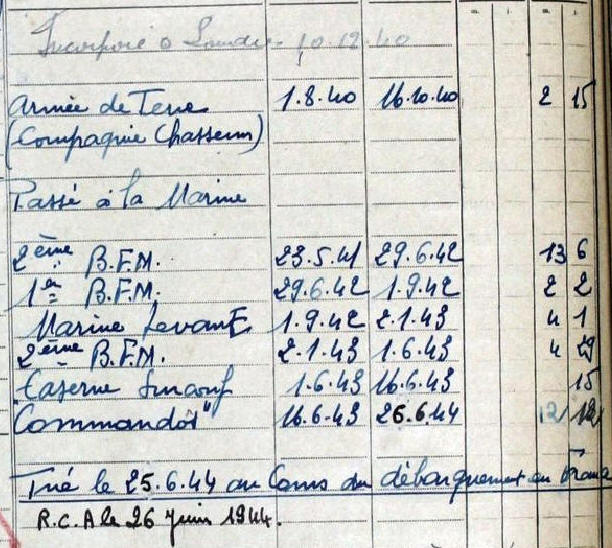 Incorporé à Londres 10.12.40
Armée de Terre 1.8.40 16.10.40 2 15
(Compagnie Chasseurs)
Passé à la Marine
2ème B.F.M. 23.5.41 29.6.42 13 6
1er B.F.M. 29.6.42 1.9.42 2 2
Marine Levant 1.9.42 2.1.43 4 1
2ème B.F.M. 2.1.43 1.6.43 4 29
Caserne Surcouf 1.6.43 16.6.43 15
Commandos" 16.6.43 26.6.44 12
Tué le 25.6.44 au Cours du débarquement en France
R.C.A le 26 Juin 1944.